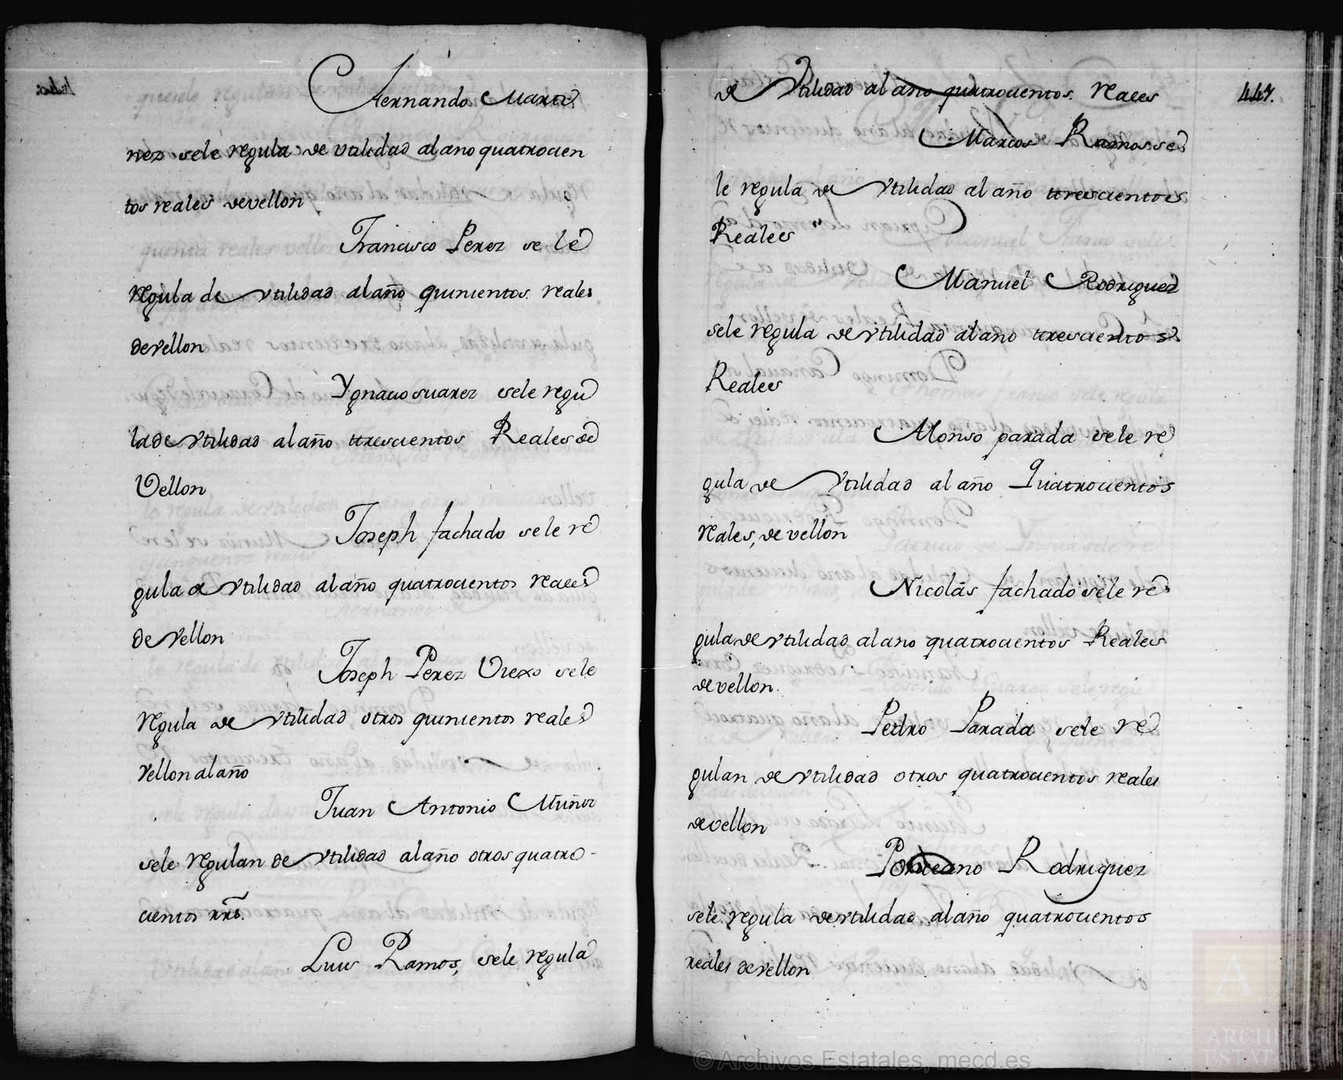 Hernando Marti
nez sele regula de vtilidad al año quatrocien
tos reales de vellon
Francisco Perez se le
regula de vtilidad al año quinientos reales
de vellon
Ygnacio suarez sele regu
la de vtilidad al año trescientos Reales de
Vellon
Joseph fachado se le re
gula de vtilidad al año quatrocientos reales
de vellon
Joseph Perez Viexo se le
regula de vtilidad otros quinientos reales
vellon al año
Juan Antonio Muñoz
sele regulan de vtilidad al año otros quatro-
cientos rrs
Luis Ramos, sele regula
de vtilidad al año quatrocientos reales
447.
Marcos Ramos se
le regula de vtilidad al año trescientos
Reales
Manuel Rodriguez
sele regula de vtilidad al año trescientos
Reales
Alonso parada se le re
gula de vtilidad al año Quatrocientos
reales, de vellon
Nicolás fachado sele re
gula de vtilidad al año quatrocientos Reales
de vellon.
Pedro Parada sele re
gulan de vtilidad otros quatrocientos reales
de vellon
Rodriguez
sele regula de vtilidad al año quatrocientos
reales de vellon
© Archivos Estatales, mecd.es
A
ARCHIVOS
ESTATALES